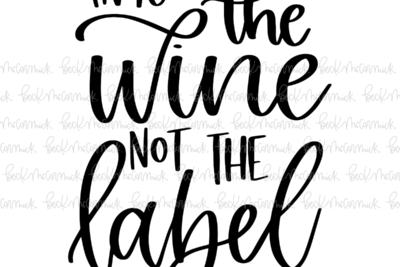 the
wine
NOT THE
label